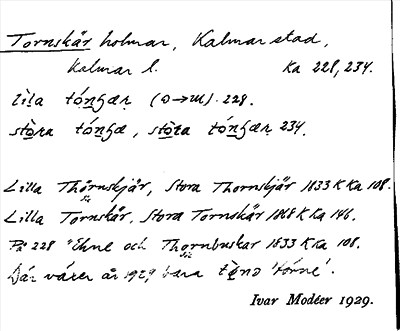 Tornskär holmar, Kalmar stad,
Kalmar l. Ka 228, 234.
lila (O→u). 228.
stora 234.
Lilla Thörnskjär, Stora Thornskjär 1833 K Ka 108.
Lilla Tornskär, Stora Tornskär 1868 K Ka 146.
På 228 "Ehne och Thornbuskar 1833 K Ka 108.
Där växer år 1929 bara 'törne'.
Ivar Modéer 1929.